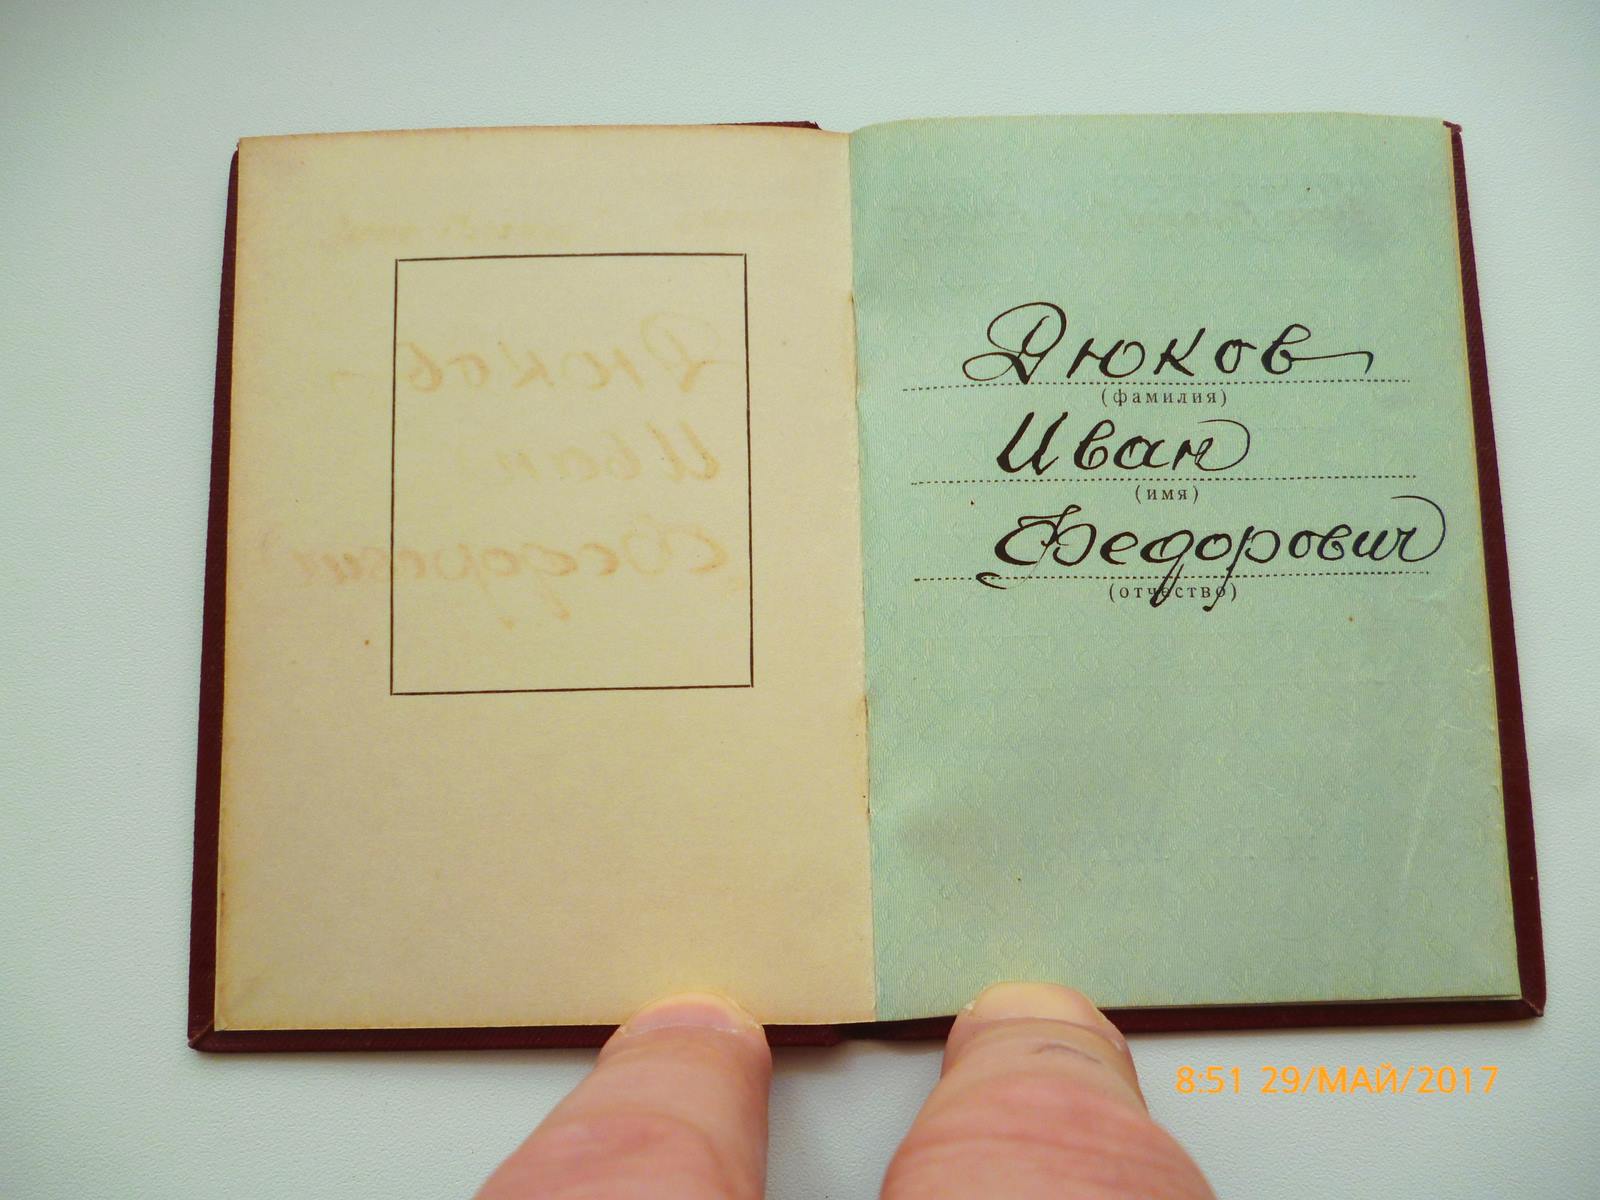 Дюков
(фамилия)
Иван
(имя)
Федорович
(отчество)
8:51 29/МАЙ/2017